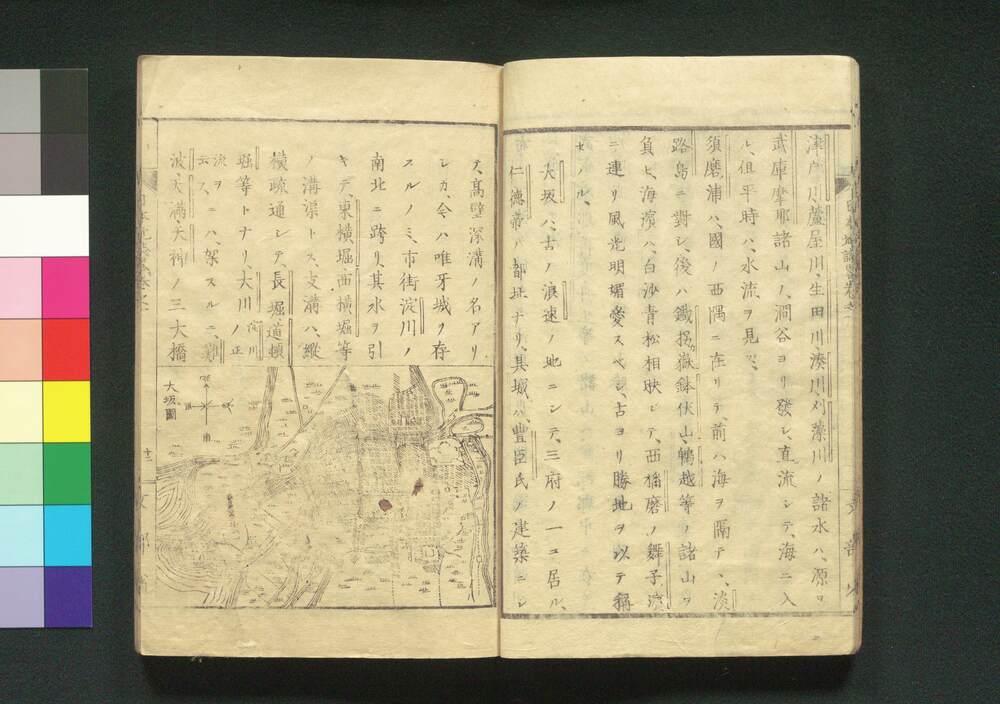 津戸川、蘆屋川、生田川、湊川、刈藻川ノ諸水ハ、源ヲ
武庫摩耶諸山ノ、澗谷ヨリ發シ、直流シテ、海ニ入
ル、但平時ハ、水流ヲ見ズ、
須磨浦ハ、國ノ西隅ニ在リテ、前ハ海ヲ隔テヽ、淡
路島ニ對シ、後ハ鐵拐嶽鉢伏山、鵯越等ノ諸山ヲ
負ヒ、海濱ハ、白沙青松相映シテ、西播磨ノ舞子濱
ニ連リ風光明媚愛スベシ、古ヨリ勝地ヲ以テ稱
セラル、
大坂ハ、古ノ浪速ノ地ニシテ、三府ノ一ニ居ル、
仁德帝ノ都址ナリ、其城ハ、豐臣氏ノ建築ニシ
テ、高壁深溝ノ名アリ
シカ、今ハ唯牙城ヲ存
スルノミ、市街淀川ノ
南北ニ跨リ、其水ヲ引
キテ、東橫堀西橫堀等
ノ溝渠トス、支溝ハ、縱
橫疏通シテ、長堀道頓
堀等トナリ、大川淀川ノ正
流ヲ云フ、ニハ、架スルニ、難
波、天滿、天神ノ三大橋
大坂圖